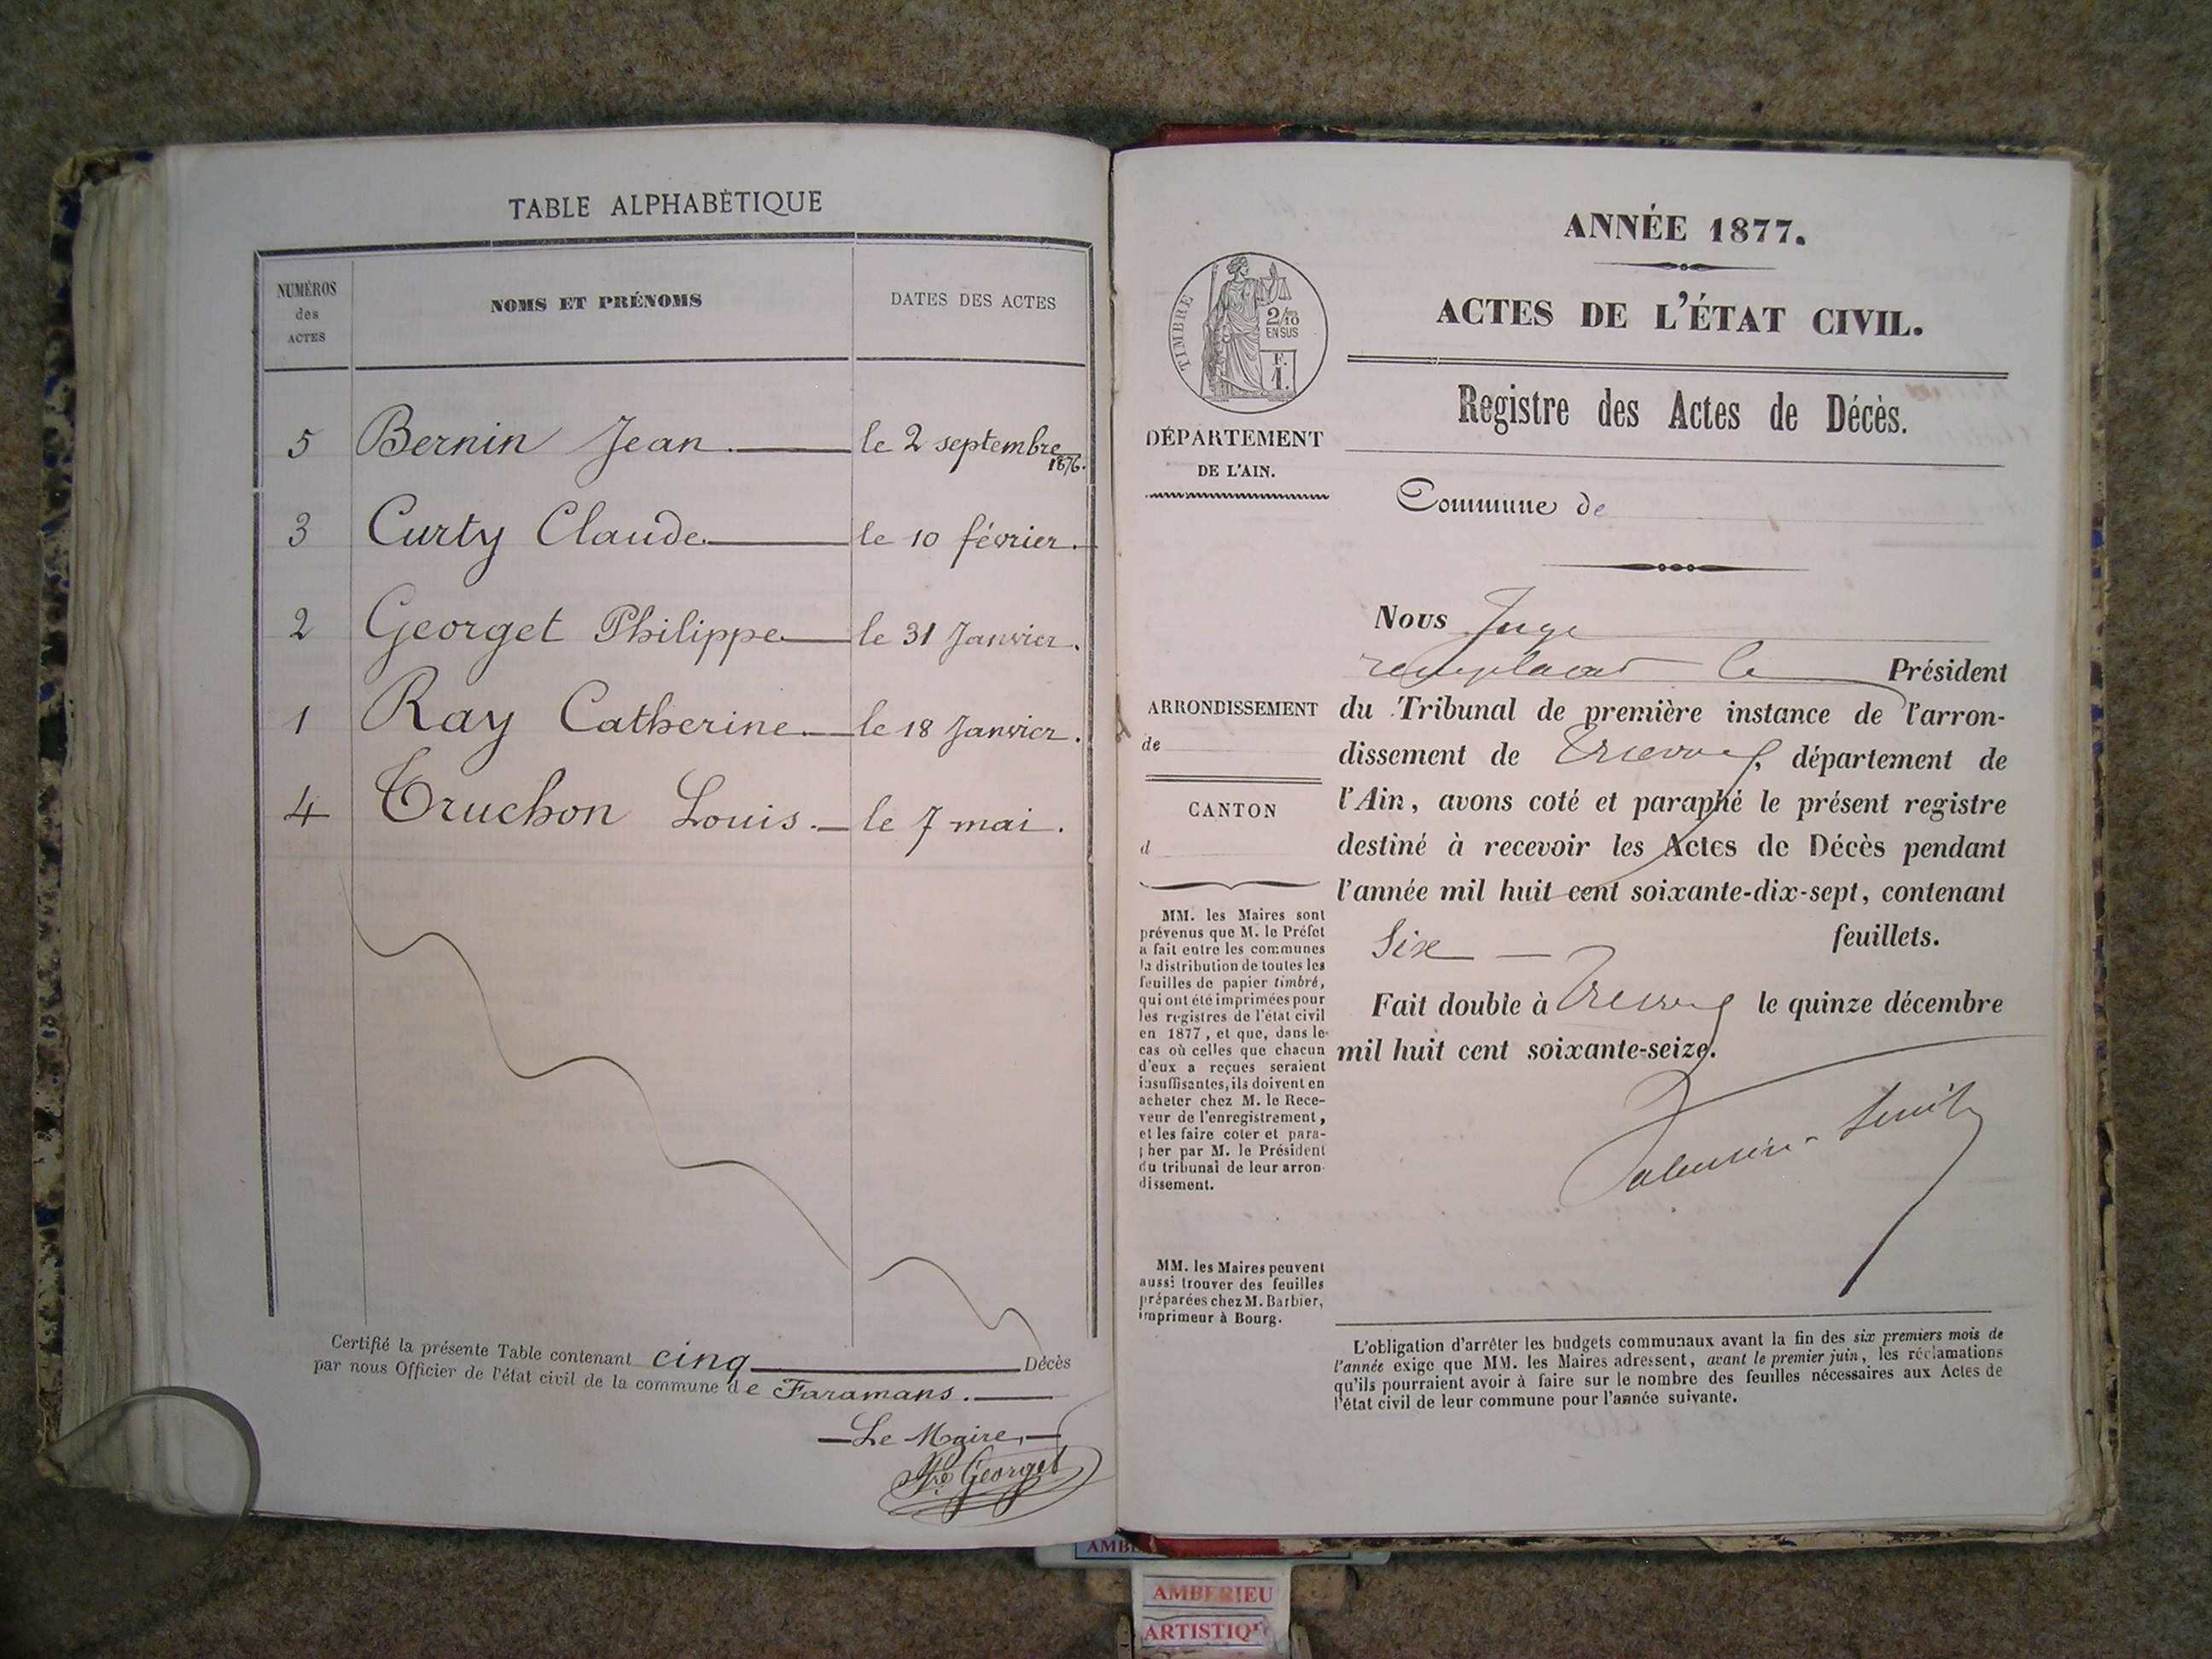 TABLE ALPHABÉTIQUE
NUMÉROS
des
ACTES
NOMS ET PRÉNOMS
DATES DES ACTES
5 Bernin Jean le 2 septembre
1876.
3 Curty Claude le 10 février.
2 Georget Philippe le 31 Janvier.
1 Ray Catherine le 18 Janvier.
4 Truchon Louis. le 7 mai.
Certifié la présente Table contenant cinq Décès
par nous Officier de l'état civil de la commune de Faramans.
Le Maire,
Georget
ANNÉE 1877.
ACTES DE L'ÉTAT CIVIL.
Registre des Actes de Décès.
TIMBRE
2/10
EN SUS
F.
1.
DÉPARTEMENT
DE L'AIN.
Commune de
Nous Juge
remplaçant le Président
du Tribunal de première instance de l'arron-
dissement de Trévoux, département de
l'Ain, avons coté et paraphé le présent registre
destiné à recevoir les Actes de Décès pendant
l'année mil huit cent soixante-dix-sept, contenant
Six feuillets.
Fait double à Trévoux le quinze décembre
mil huit cent soixante-seize.
Valentin-Smith
ARRONDISSEMENT
de
CANTON
d
MM. les Maires sont
prévenus que M. le Préfet
a fait entre les communes
la distribution de toutes les
feuilles de papier timbré,
qui ont été imprimées pour
les registres de l'état civil
en 1877, et que, dans le
cas où celles que chacun
d'eux a reçues seraient
insuffisantes, ils doivent en
acheter chez M. le Rece-
veur de l'enregistrement,
et les faire coter et para-
pher par M. le Président
du tribunal de leur arron-
dissement.
MM. les Maires peuvent
aussi trouver des feuilles
préparées chez M. Barbier,
imprimeur à Bourg.
L'obligation d'arrêter les budgets communaux avant la fin des six premiers mois de
l'année exige que MM. les Maires adressent, avant le premier juin, les réclamations
qu'ils pourraient avoir à faire sur le nombre des feuilles nécessaires aux Actes de
l'état civil de leur commune pour l'année suivante.
AMBERIEU
ARTISTIQU